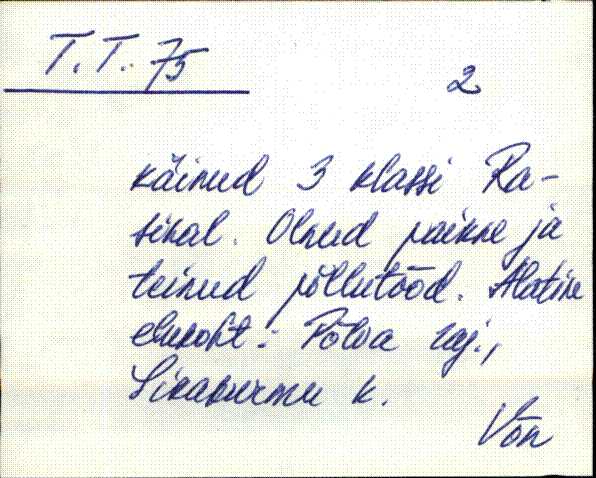 T.T. 75
2
käinud 3 klassi Ra-
sinal. Olnud paikne ja
teinud põllutööd. Alatine
elukoht: Põlva raj.,
Sikakurmu k.
Võn